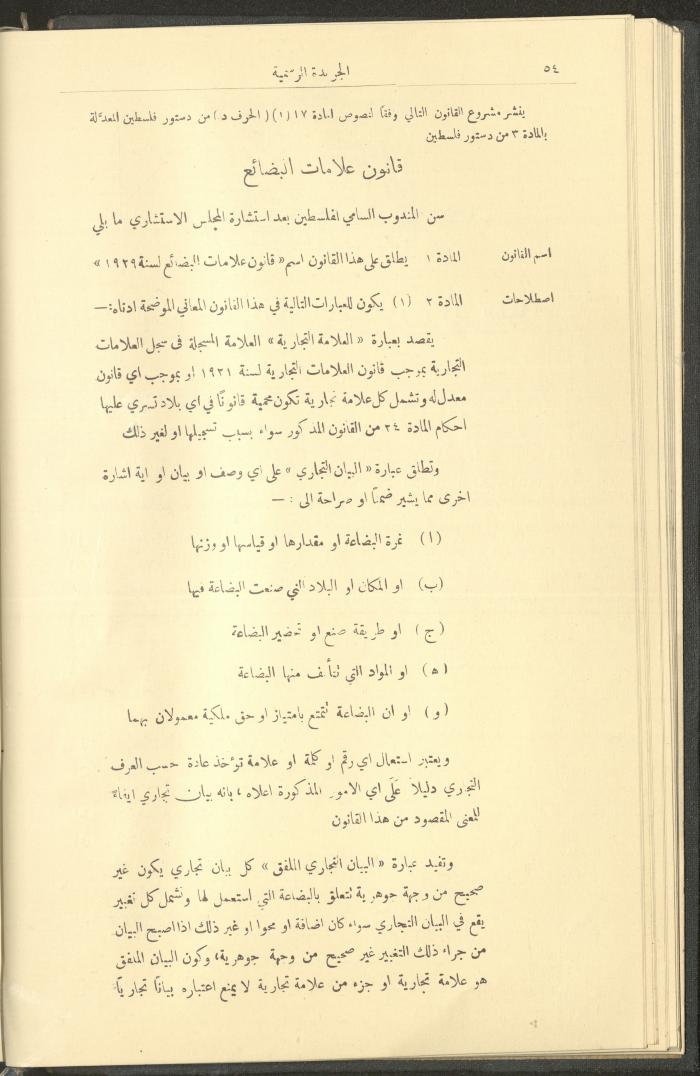 ٥٤
الجريدة الرسمية
ينشر مشروع القانون التالي وفقا لنصوص المادة ١٧ (١) (الحرف د) من دستور فلسطين المعدلة
بالمادة ٣ من دستور فلسطين
قانون علامات البضائع
سن المندوب السامي لفلسطين بعد استشارة المجلس الاستشاري ما يلي
اسم القانون
المادة ١ يطلق على هذا القانون اسم « قانون علامات البضائع لسنة ١٩٢٩ »
اصطلاحات
المادة ٢ (١) يكون للعبارات التالية في هذا القانون المعاني الموضحة ادناه:—
يقصد بعبارة « العلامة التجارية » العلامة المسجلة في سجل العلامات
التجارية بموجب قانون العلامات التجارية لسنة ١٩٢١ او بموجب اي قانون
معدل له وتشمل كل علامة تجارية تكون محمية قانونًا في اي بلاد تسري عليها
احكام المادة ٢٤ من القانون المذكور سواء بسبب تسجيلها او لغير ذلك
وتطلق عبارة « البيان التجاري » على اي وصف او بيان او اية اشارة
اخرى مما يشير ضمنًا او صراحة الى : —
(ا) نمرة البضاعة او مقدارها او قياسها او وزنها
(ب) او المكان او البلاد التي صنعت البضاعة فيها
(ج) او طريقة صنع او تحضير البضاعة
(ه) او المواد التي تتألف منها البضاعة
(و) او ان البضاعة تتمتع بامتياز او حق ملكية معمولان بهما
ويعتبر استعمال اي رقم او كلمة او علامة تؤخذ عادة حسب العرف
التجاري دليلاً عَلَى اي الامور المذكورة اعلاه ، بانه بيان تجاري ايفاءً
للمعنى المقصود من هذا القانون
وتفيد عبارة « البيان التجاري الملفق » كل بيان تجاري يكون غير
صحيح من وجهة جوهرية تتعلق بالبضاعة التي استعمل لها وتشمل كل تغيير
يقع في البيان التجاري سواء كان اضافة او محوا او غير ذلك اذا اصبح البيان
من جراء ذلك التغيير غير صحيح من وجهة جوهرية، وكون البيان الملفق
هو علامة تجارية او جزء من علامة تجارية لا يمنع اعتباره بيانًا تجاريًا